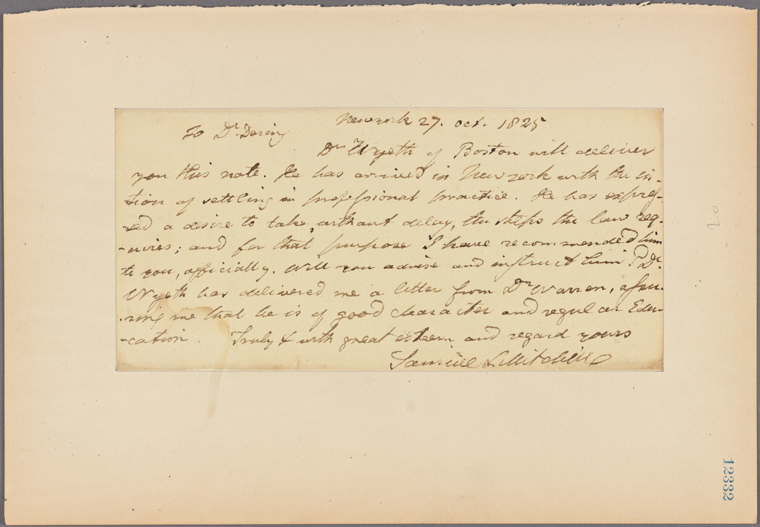 Newyork 27. Oct. 1825
To Dr. Dering
Dr Wyeth of Boston will deliver
you this note. He has arrived in Newyork with the in-
tion of settling in professional practice. He has expres-
-sed a desire to take, without delay, the steps the law req-
-uires; and for that purpose I have recommended him
to you, officially. Will you advise and instruct him? Dr.
Wyeth has delivered me a letter from Dr Warren, assu-
ring me that he is of good character and regular Edu-
-cation. Truly & with great esteem and regard yours
Samuel L Mitchill
20
12332